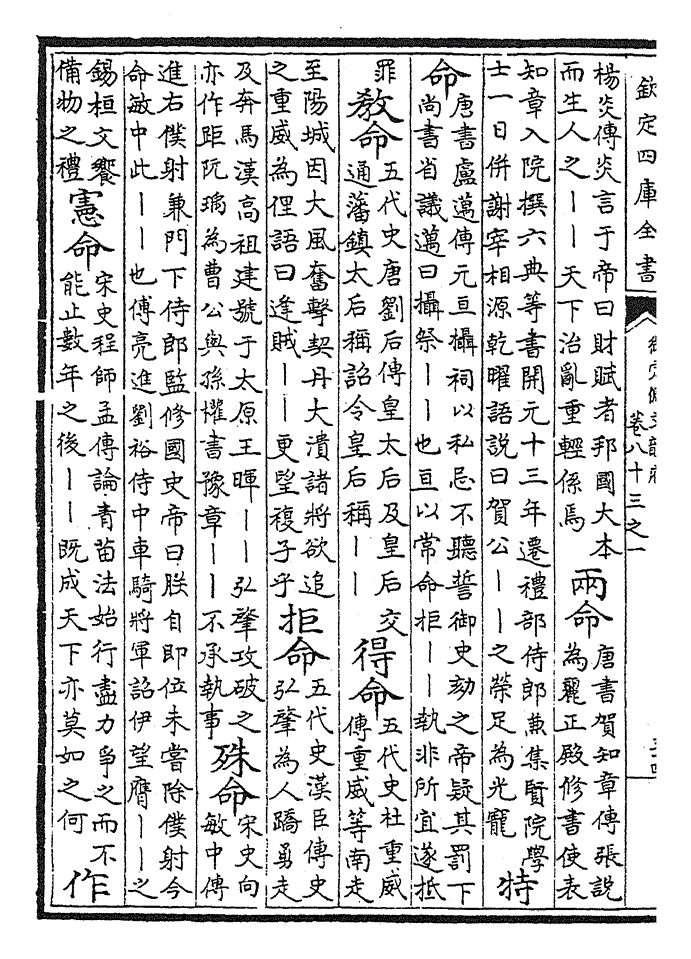 欽定四庫全書
卷八十三之一
楊炎傳炎言于帝曰財賦者邦國大本
而生人之——天下治亂重輕係焉
兩命
唐書賀知章傳張說
為麗正殿修書使表
知章入院撰六典等書開元十三年遷禮部侍郎兼集賢院學
士一日併謝宰相源乾曜語說曰賀公——之榮足為光寵
特
命
唐書盧邁傳元亘攝祠以私忌不聽誓御史劾之帝疑其罰下
尚書省議邁曰攝祭——也亘以常命拒——執非所宜遂抵
罪
敎命
五代史唐劉后傳皇太后及皇后交
通藩鎮太后稱詔令皇后稱——
得命
五代史杜重威
傳重威等南走
至陽城因大風奮擊契丹大潰諸將欲追
之重威為俚語曰逢賊——更望複子乎
拒命
五代史漢臣傳史
弘肇為人蹻勇走
及奔馬漢高祖建號于太原王暉——弘肇攻破之
亦作距阮瑀為曹公與孫懽書豫章——不承執事
殊命
宋史向
敏中傳
進右僕射兼門下侍郎監修國史帝曰朕自即位未嘗除僕射今
命敏中此——也傅亮進劉裕侍中車騎將軍詔伊望膺——之
錫桓文饗
備物之禮
憲命
宋史程師孟傳論青苗法始行盡力爭之而不
能止數年之後——既成天下亦莫如之何
作